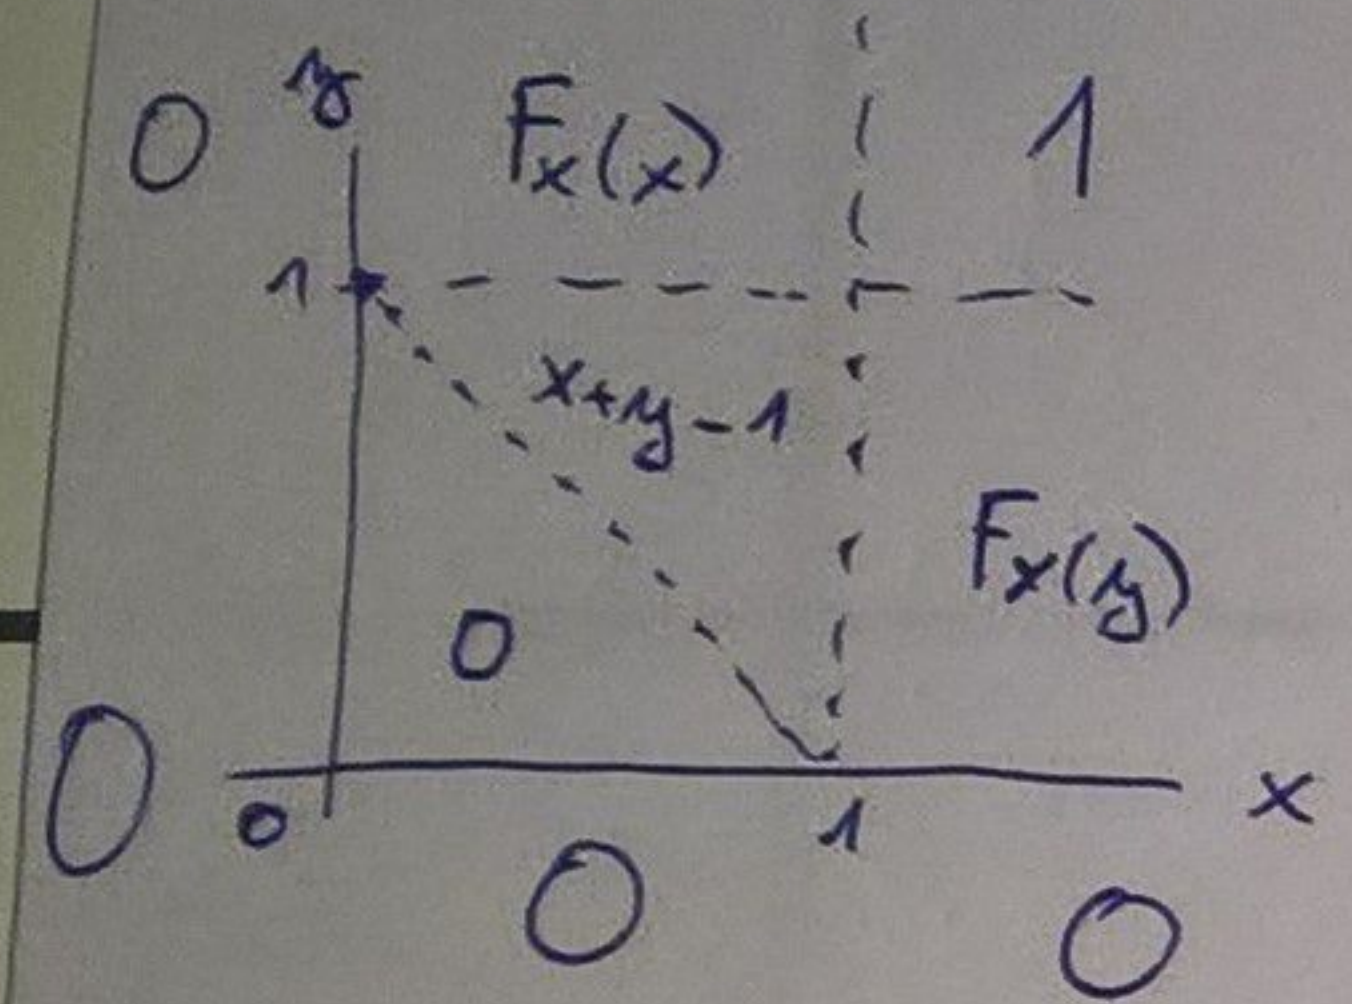 0 y F_x(x) 1
1
x+y-1
F_x(y)
0
0 x
0 1
0 0